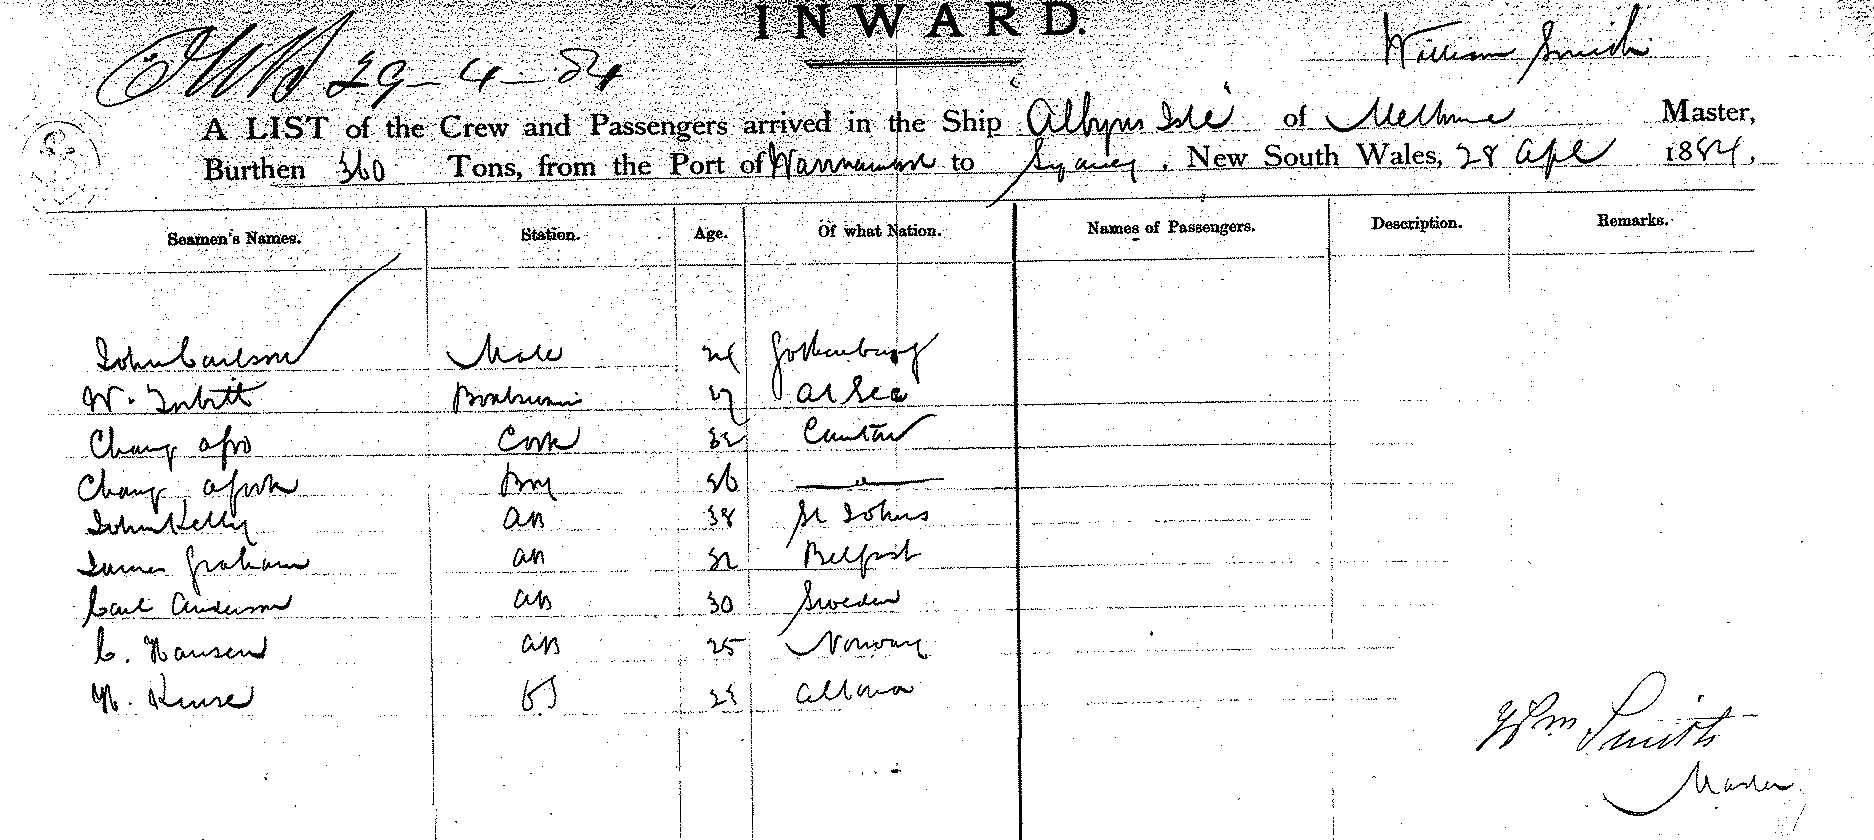 INWARD.
29-4-84
William Smith
A LIST of the Crew and Passengers arrived in the Ship "Albyns Isle" of Melbourne Master,
Burthen 360 Tons, from the Port of to Sydney, New South Wales, 28 Apl 1884.
Seamen's Names. Station. Age. Of what Nation. Names of Passengers. Description. Remarks.
John Carlson Mate Gothenburg
W. Boatswain 27 At Sea
Chang Cook 32 Canton
Chang Boy 36
John Kelly AB 38 St Johns
James Graham AB 32 Belfast
Carl Anderson AB 30 Sweden
C. Hansen AB 25 Norway
OS Altona
Wm Smith
Master